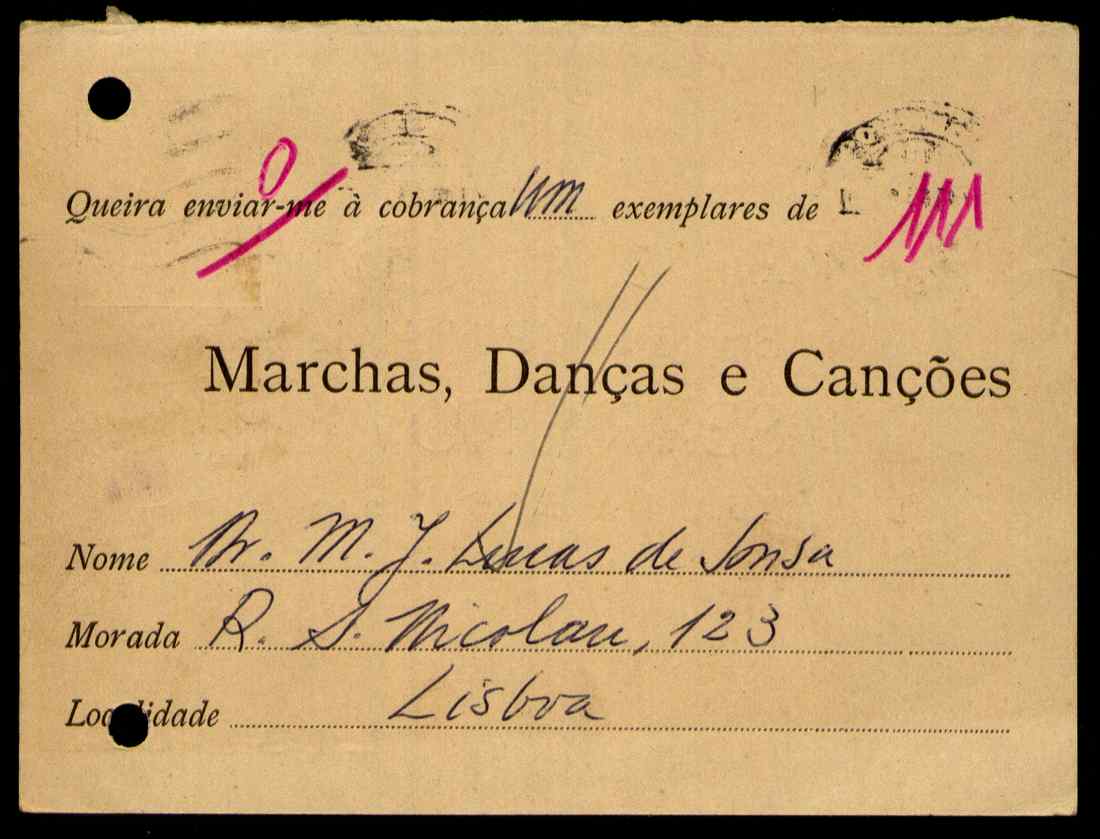 Queira enviar-me à cobrança um exemplares de
111
Marchas, Danças e Canções
Nome Dr. M. J. Lucas de Sousa
Morada R. S. Nicolau, 123
Localidade Lisboa